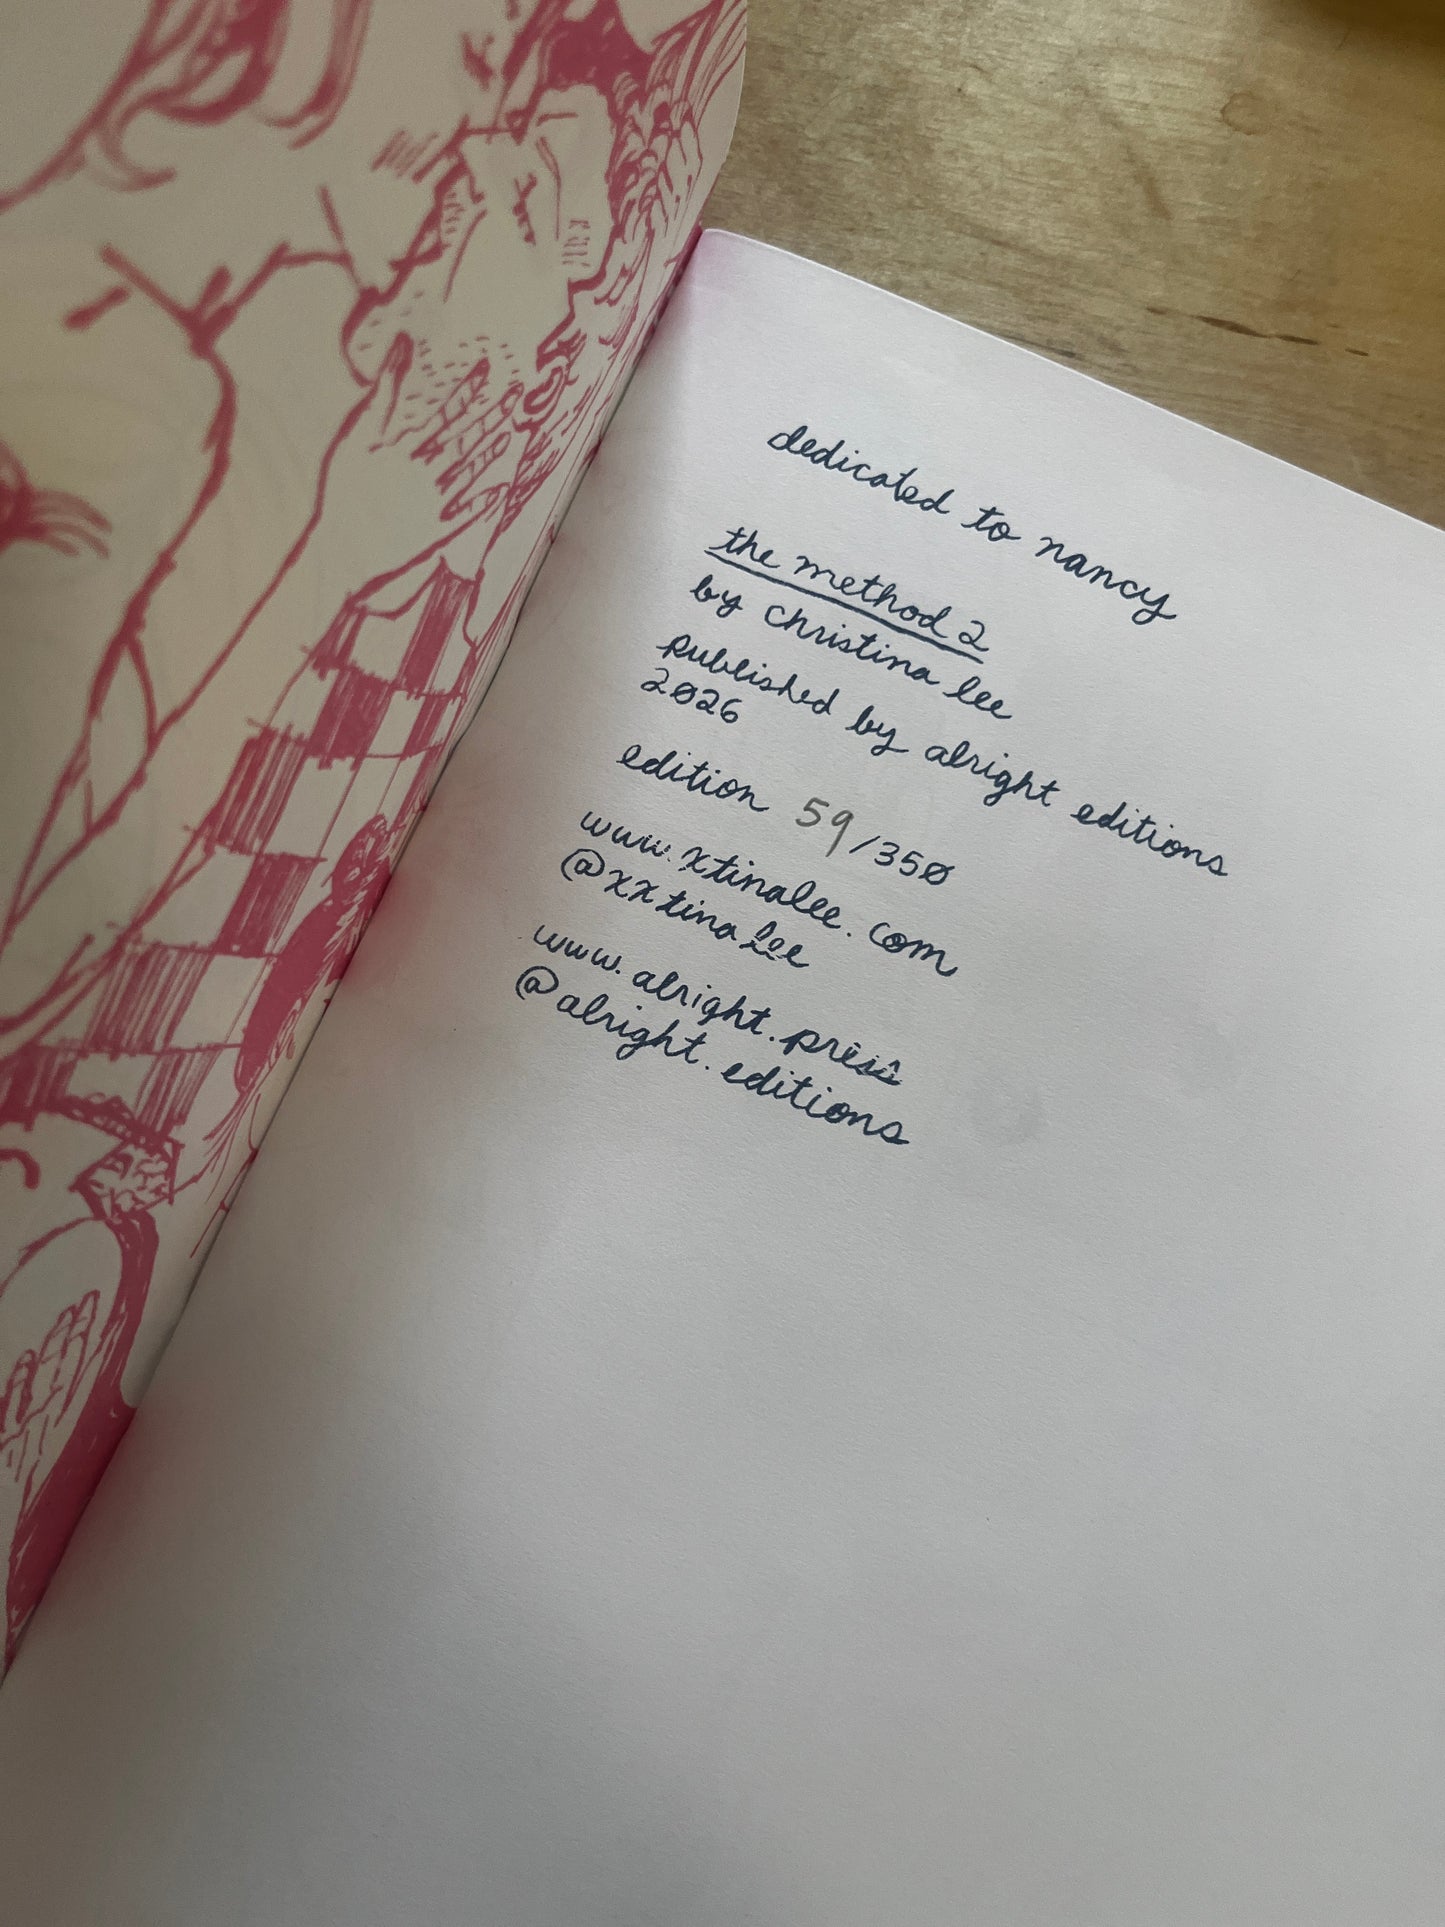 dedicated to nancy
the method 2
by christina lee
published by alright editions
2026
edition 59/350
www.xtinalee.com
@xxtinalee
www.alright.press
@alright.editions